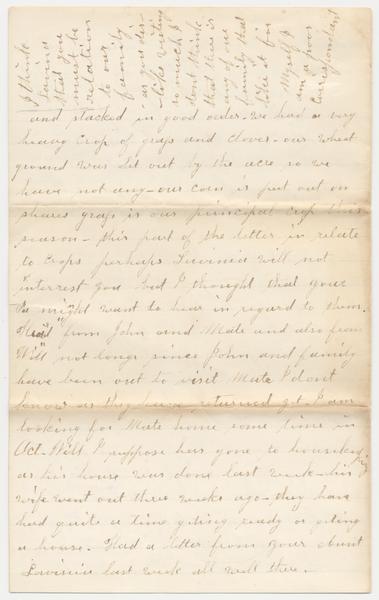 I think
Lavinia
that you
must be
relation
to our
family
as you dis
like writing
so much I
dont think
that there is
any of our
family that
like it for
Myself I
am a poor
Correspondent
and stacked in good order - we had a very
heavy crop of grass and clover - our wheat
ground was let out by the acre so we
have not any - our corn is put out on
shares grass is our principal crop this
season - this part of the letter in relate
to crops perhaps Luvinia will not
interrest you but I thought that your
Pa might want to hear in regard to them.
Heard from John and Mate and also from
Will not long since John and family
have been out to visit Mate I dont
know as they have returned yet I am
looking for Mate home some time in
Oct - Will I suppose has gone to housekeeping
as his house was done last week - his
wife went out three weeks ago - they have
had quite a time giting ready or giting
a house. Had a letter from your Aunt
Lavinia last week all well there.